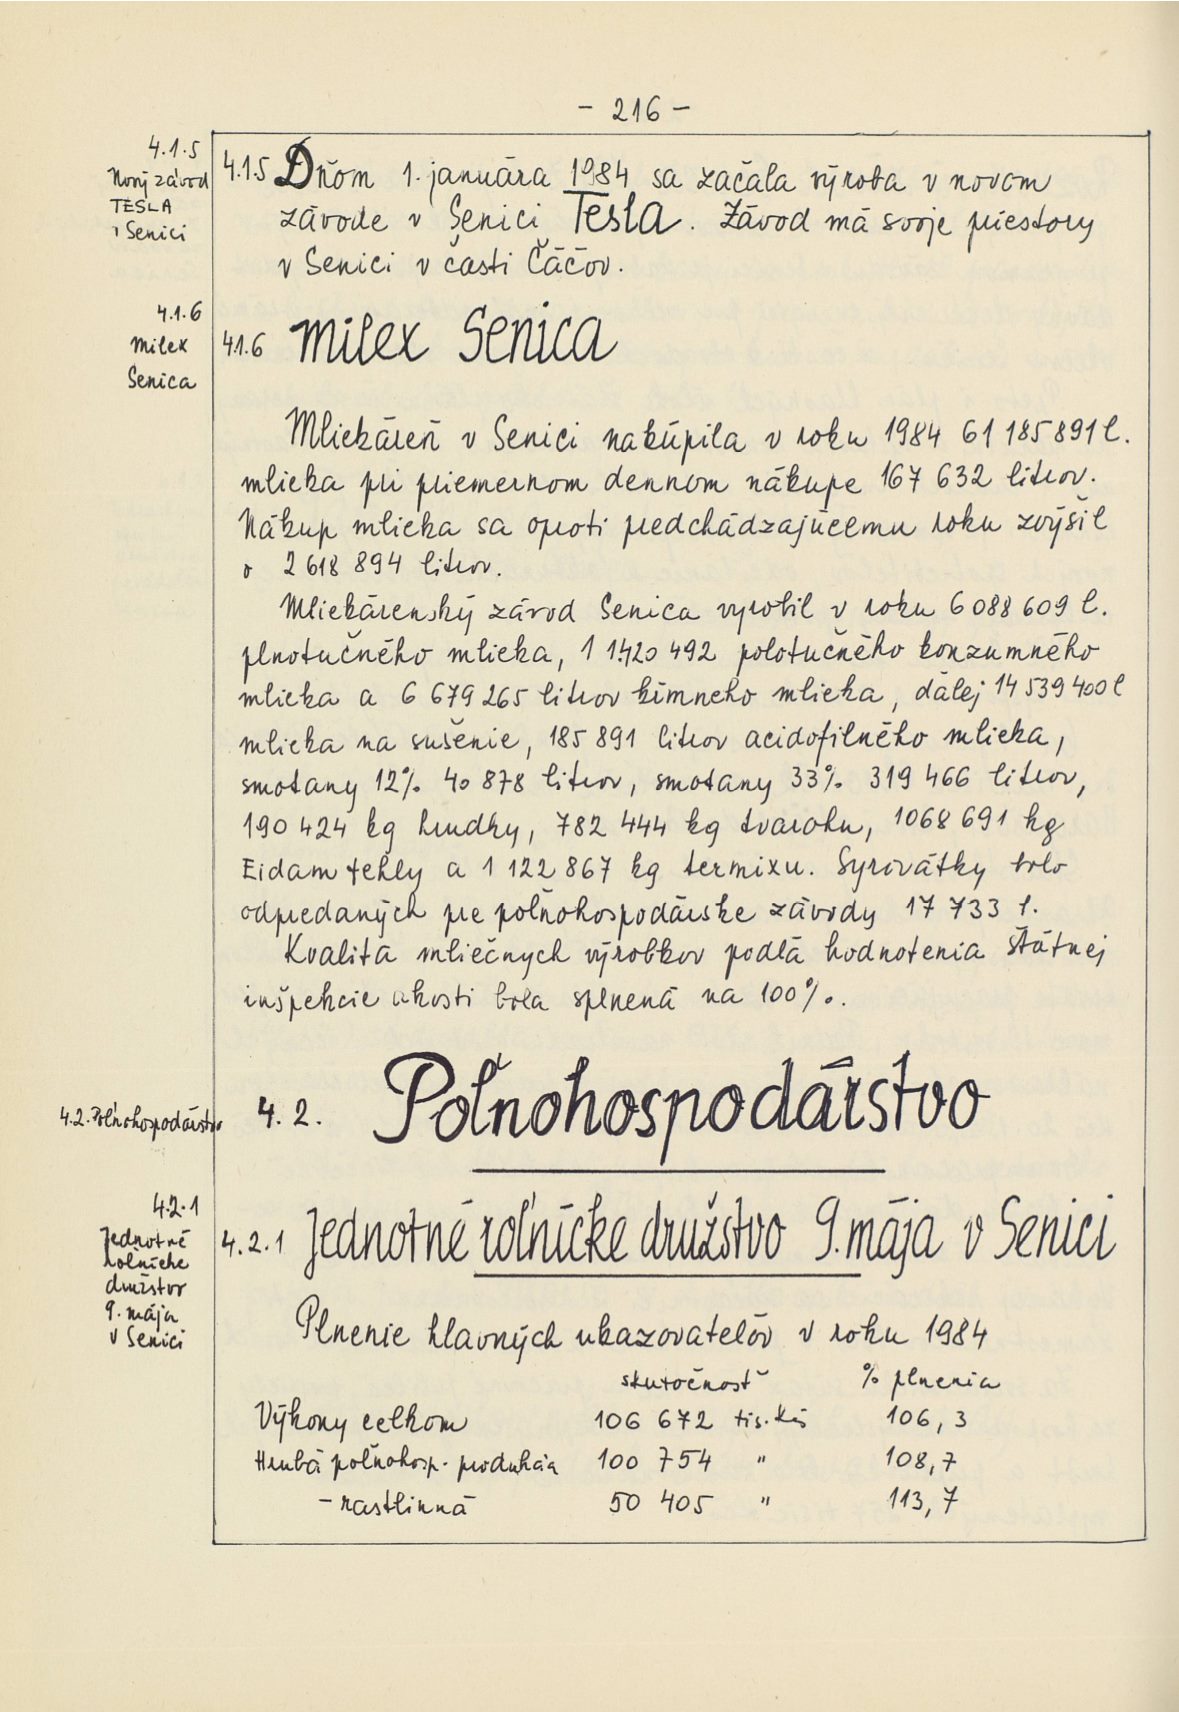 - 216 -
4.1.5
Nový závod
TESLA
v Senici
4.1.5 Dňom 1. januára 1984 sa začala výroba v novom
závode v Senici Tesla. Závod má svoje priestory
v Senici v časti Čáčov.
4.1.6
Milex
Senica
4.1.6 Milex Senica
Mliekáreň v Senici nakúpila v roku 1984 61 185 891 l.
mlieka pri priemernom dennom nákupe 167 632 litrov.
Nákup mlieka sa oproti predchádzajúcemu roku zvýšil
o 2 618 894 litrov.
Mliekárenský závod Senica vyrobil v roku 6 088 609 l.
plnotučného mlieka, 11 420 492 polotučného konzumného
mlieka a 6 679 265 litrov kŕmneho mlieka, dálej 14 539 400 l
mlieka na sušenie, 185 891 litrov acidofilného mlieka,
smotany 12% 40 878 litrov, smotany 33% 319 466 litrov,
190 424 kg hrudky, 782 444 kg tvarohu, 1068 691 kg
Eidam tehly a 1 122 867 kg termixu. Syrovátky bolo
odpredaných pre poľnohospodárske závody 17 733 l.
Kvalita mliečnych výrobkov podľa hodnotenia Štátnej
inšpekcie akosti bola splnená na 100%.
4.2. Poľnohospodárstvo
4.2. Poľnohospodárstvo
4.2.1
Jednotné
roľnícke
družstvo
9. mája
v Senici
4.2.1 Jednotné roľnícke družstvo 9. mája v Senici
Plnenie hlavných ukazovateľov v roku 1984
skutočnosť % plnenia
Výkony celkom 106 672 tis. Kčs 106,3
Hrubá poľnohosp. produkcia 100 754 " 108,7
- rastlinná 50 405 " 113,7